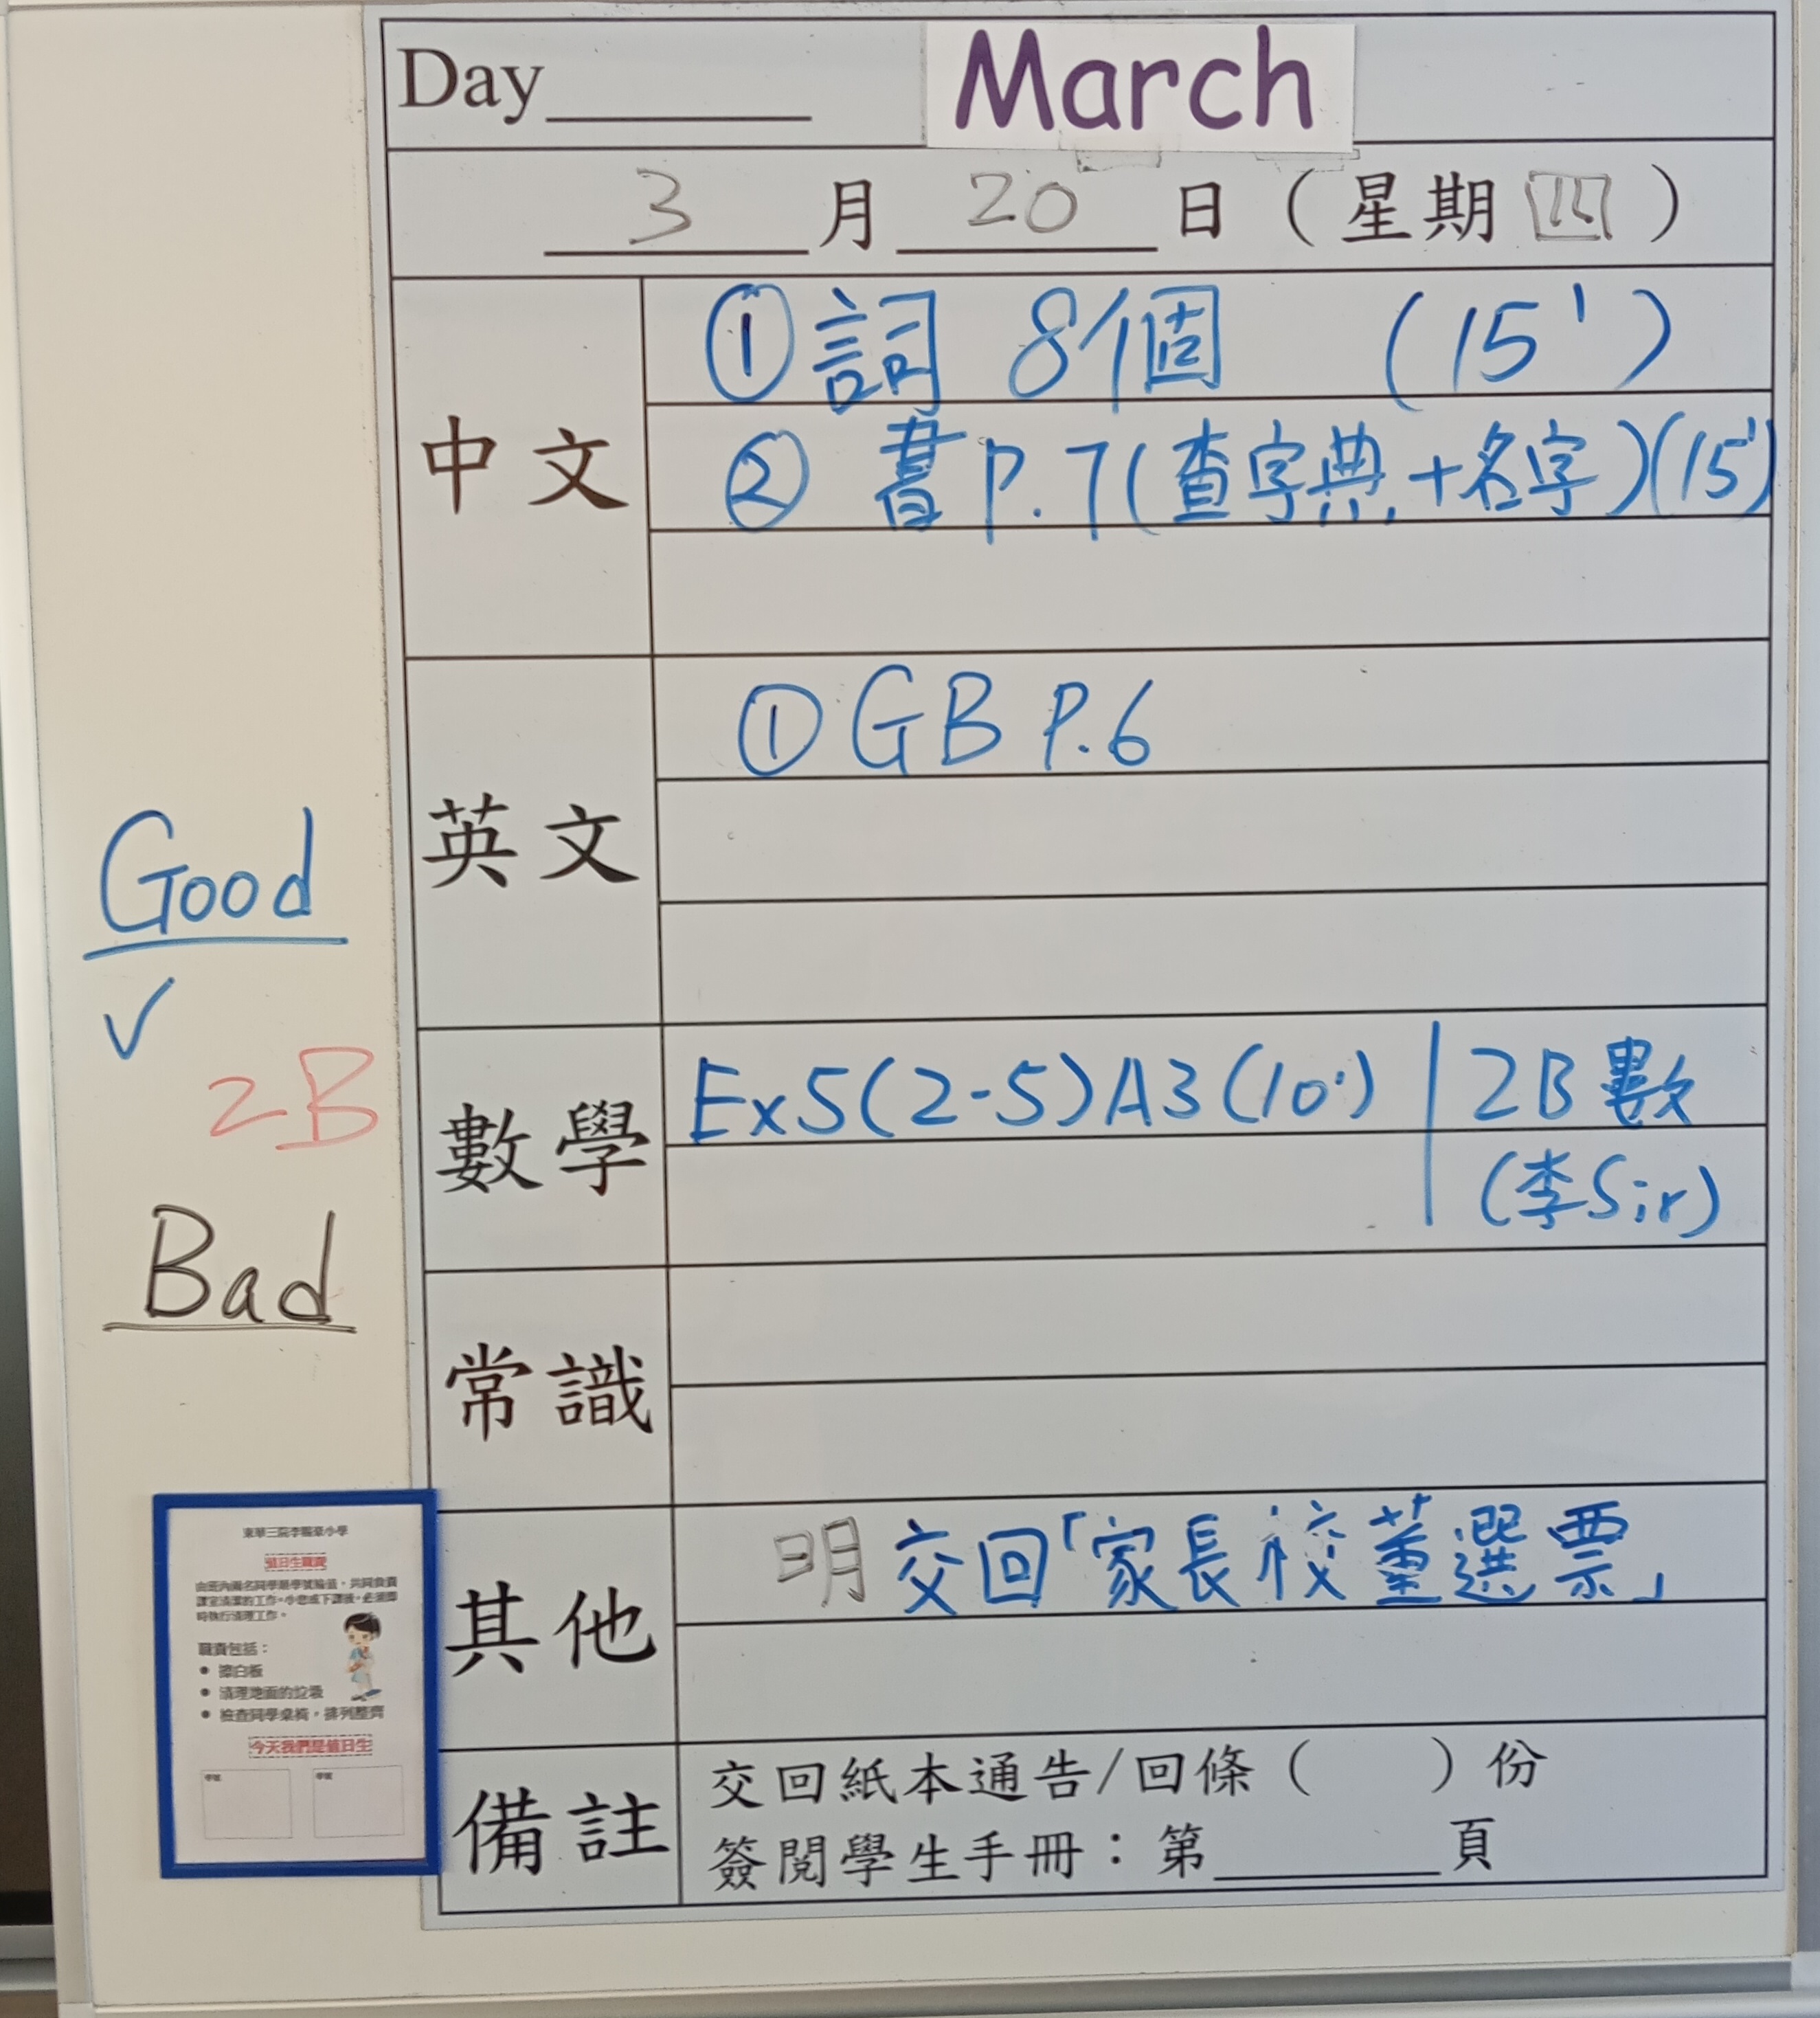 Day
March
3 月 20 日（星期四）
中文
① 詞 8個 (15')
② 書 P.7(查字典,+名字)(15')
英文
① GB P.6
Good
✓
2B
Bad
數學
Ex5(2-5)A3(10') | 2B 數
(李Sir)
常識
其他
明交回「家長校董選票」
備註
交回紙本通告/回條（ ）份
簽閱學生手冊：第 頁
值日生職責
由班內兩名同學順學號輪值，共同負責
課室清潔的工作。小息或下課後，必須即
時執行清理工作。
職責包括：
● 擦白板
● 清理地面的垃圾
● 檢查同學桌椅，排列整齊
今天我們是值日生
學號 學號